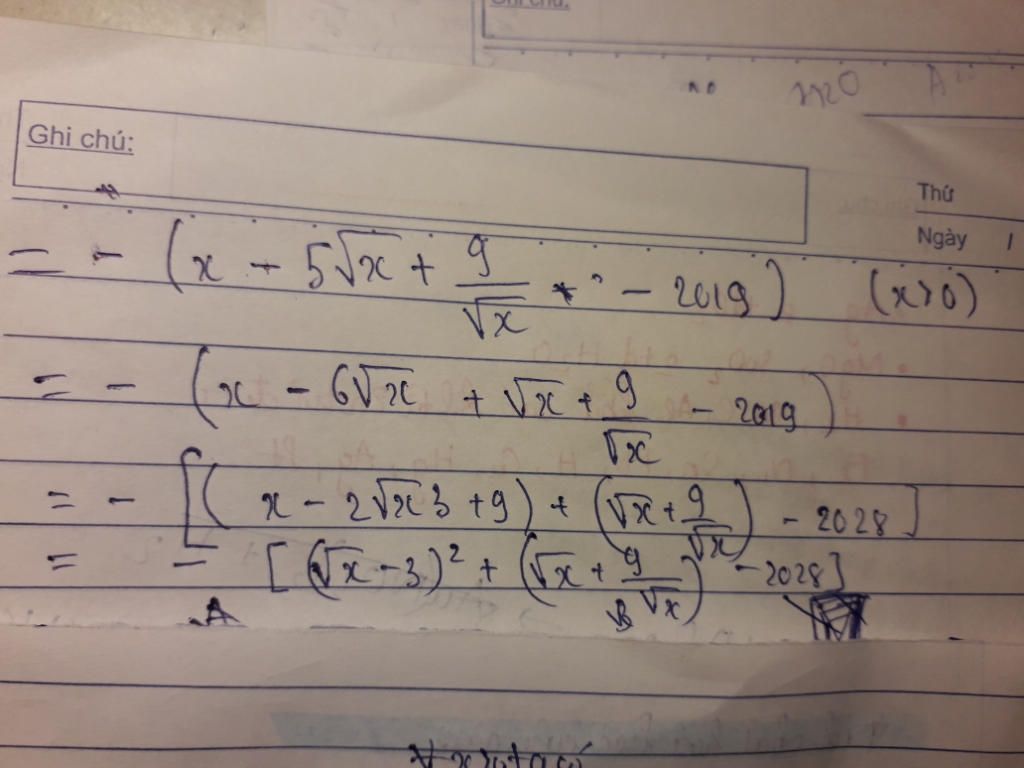 Ghi chú:
x>0
Ghi chú:
Thứ
Ngày /
= - (x - 5√x + 9/√x - 2019) (x>0)
= - (x - 6√x + √x + 9/√x - 2019)
= - [(x - 2√x3 + 9) + (√x + 9/√x) - 2028]
= - [(√x - 3)² + (√x + 9/√x) - 2028]
A B